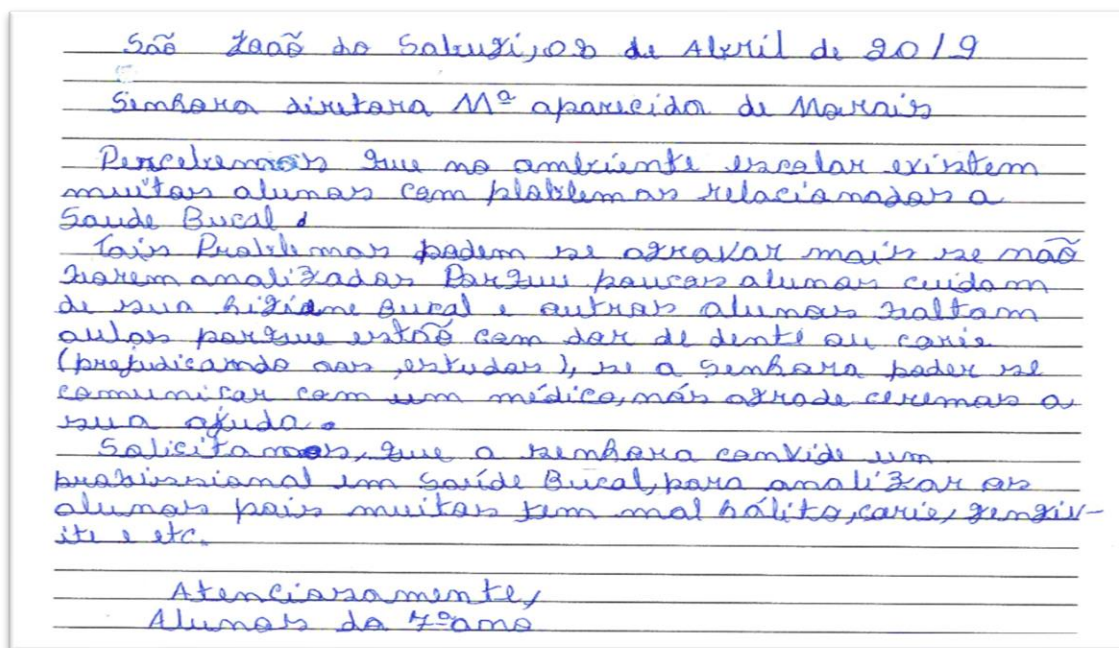 São João do Sabugi, 08 de Abril de 2019
Senhora diretora Mª aparecida de Morais
Percebemos que no ambiente escolar existem
muitos alunos com ploblemas relacionados a
Saude Bucal.
Tais Problemas podem se agravar mais se não
forem analizados Porque poucos alunos cuidam
de sua higiene Bucal e outros alunos faltam
aulas porque estão com dor de dente ou carie
(prejudicando aos estudos), se a Senhora poder se
comunicar com um médico, nós agrade ceremos a
sua ajuda.
Solicitamos, que a senhora convide um
profissional em Saúde Bucal, para analizar os
alunos pois muitos tem mal hálito, carie, gengiv-
ite e etc.
Atenciosamente,
Alunos do 7º ano